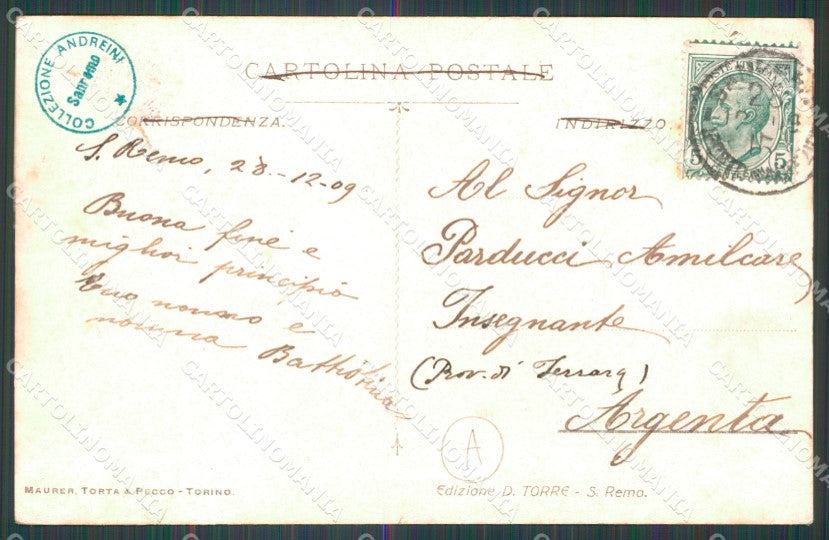 COLLEZIONE ANDREINI
Sanremo
CARTOLINA POSTALE
CORRISPONDENZA.
INDIRIZZO.
S. Remo, 28.-12-09
Buona fine e
miglior principio
tuo nonno e
nonna Battistina
Al Signor
Parducci Amilcare
Insegnante
(Prov. di Ferrara)
Argenta
A
5 5
MAURER, TORTA & PECCO - TORINO.
Edizione D. TORRE - S. Remo.
CARTOLINOMANIA